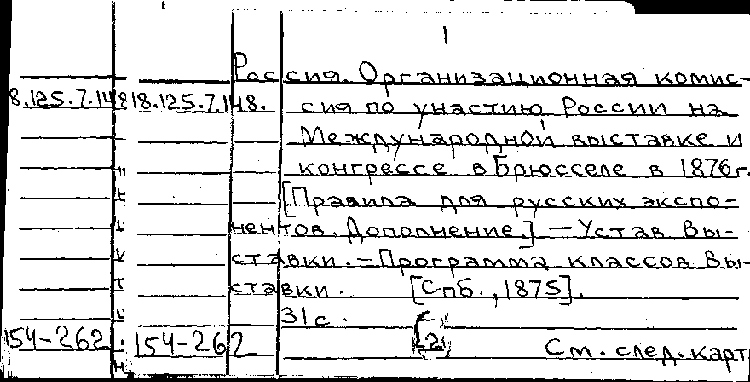 1
Россия. Организационная комис-
8.125.7.148 18.125.7.148. сия по участию России на
Международной выставке и
конгрессе в Брюсселе в 1876 г.
[Правила для русских экспо-
нентов. Дополнение.] — Устав Вы-
ставки. = Программа классов Вы-
ставки. [СПб., 1875].
31 с.
154-262 154-262 См. след. карт